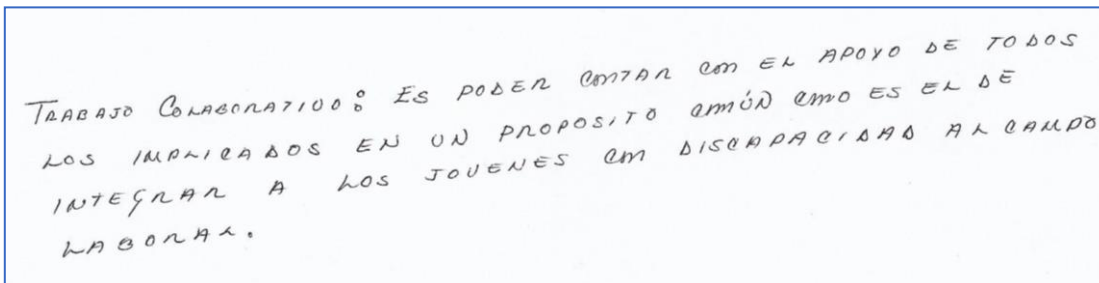 TRABAJO COLABORATIVO: ES PODER CONTAR CON EL APOYO DE TODOS
LOS IMPLICADOS EN UN PROPOSITO COMÚN COMO ES EL DE
INTEGRAR A LOS JOVENES CON DISCAPACIDAD AL CAMPO
LABORAL.